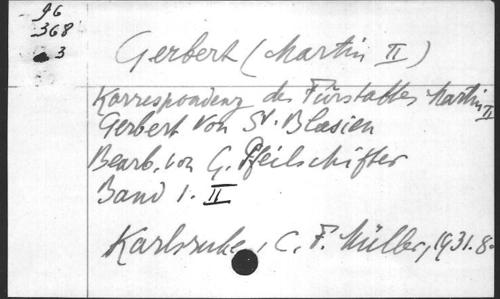 J6
368
3
Gerbert (Martin II)
Korrespondenz des Fürstabtes Martin II
Gerbert von St. Blasien
Bearb. von G. Pfeilschifter
Band 1. II
Karlsruhe, C. F. Müller, 1931. 8°